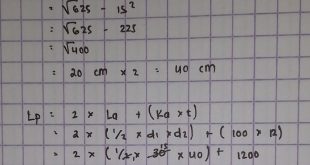 = √625 - 15²
= √625 - 225
= √400
= 20 cm × 2 = 40 cm
Lp = 2 × La + (Ka × t)
= 2 × (1/2 × d1 × d2) + (100 × 12)
= 2 × (1/2 × 30 15 × 40) + 1200